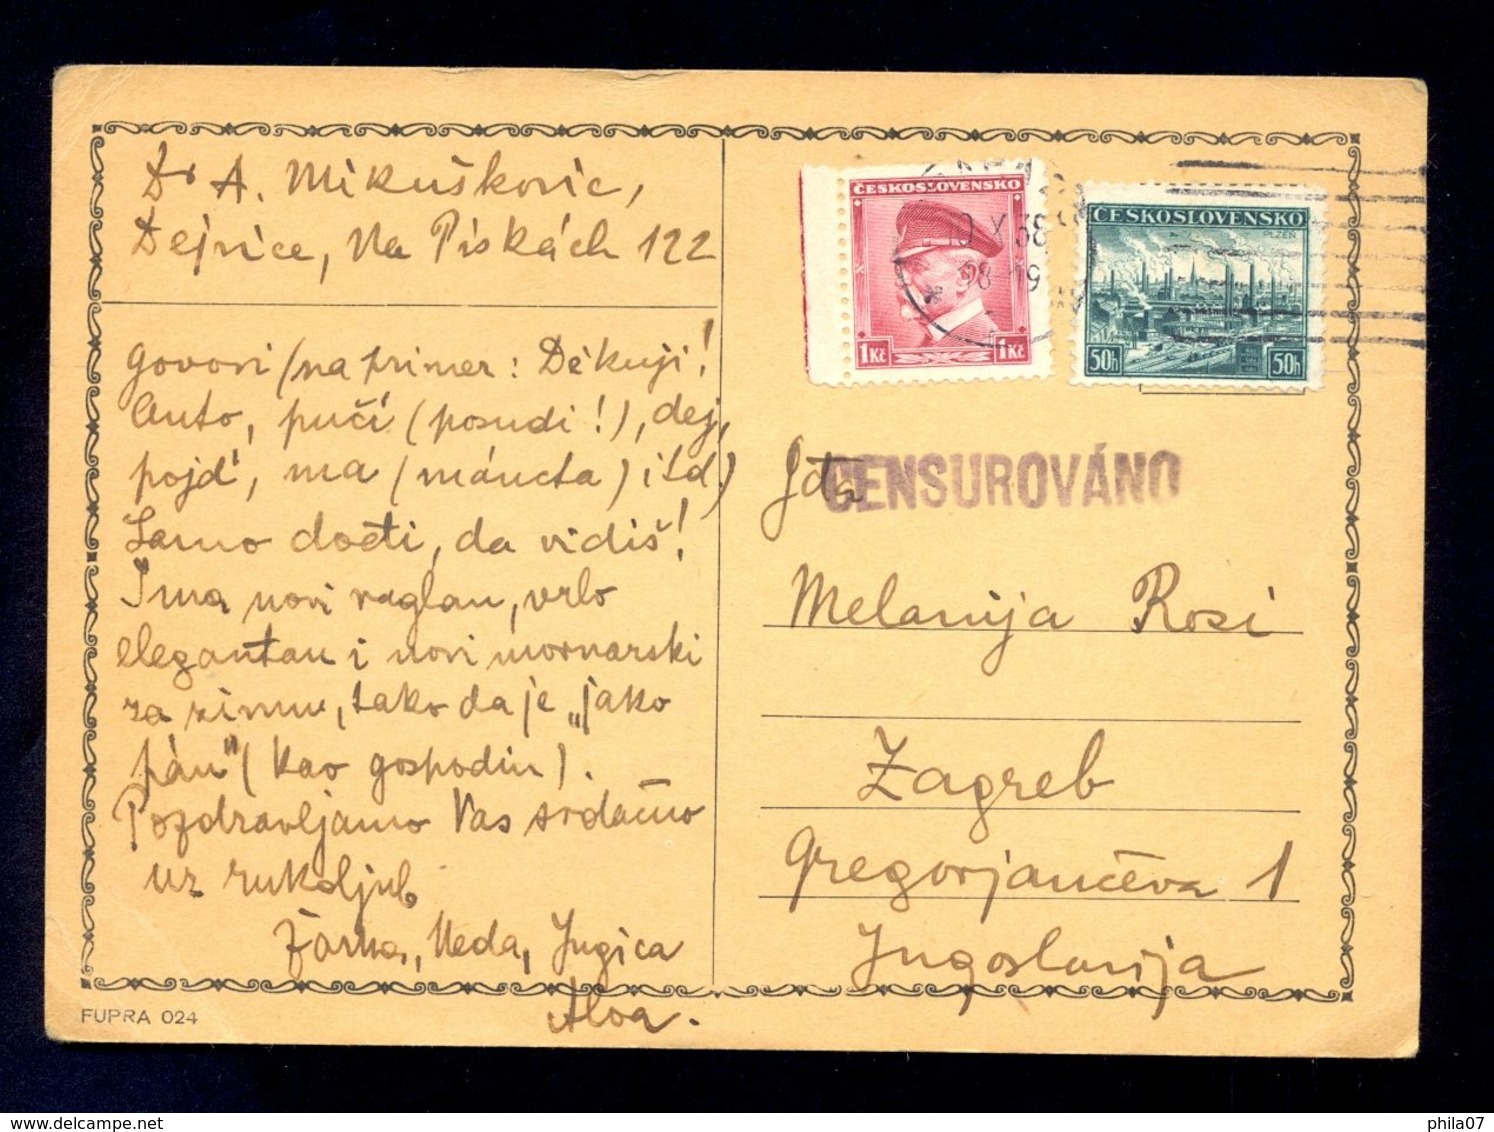 Dr A. Mikuškovic,
Dejvice, Na Pískách 122
govori (na primer: Děkuji!
Auto, pučí (posudi!), dej,
pojď, ma (máucta) itd.)
Samo doeti, da vidiš!
Ima novi raglan, vrlo
elegantan i novi mornarski
za zimu, tako da je „jako
pán" (kao gospodin).
Pozdravljamo Vas srdačno
uz rukoljub
Žarko, Neda, Jugica
FUPRA 024
ČESKOSLOVENSKO
1Kč 1Kč
X 38
ČESKOSLOVENSKO
PLZEŇ
50h 50h
CENSUROVÁNO
Gđa
Melanija Rosi
Zagreb
Gregorjančeva 1
Jugoslavija
phila07